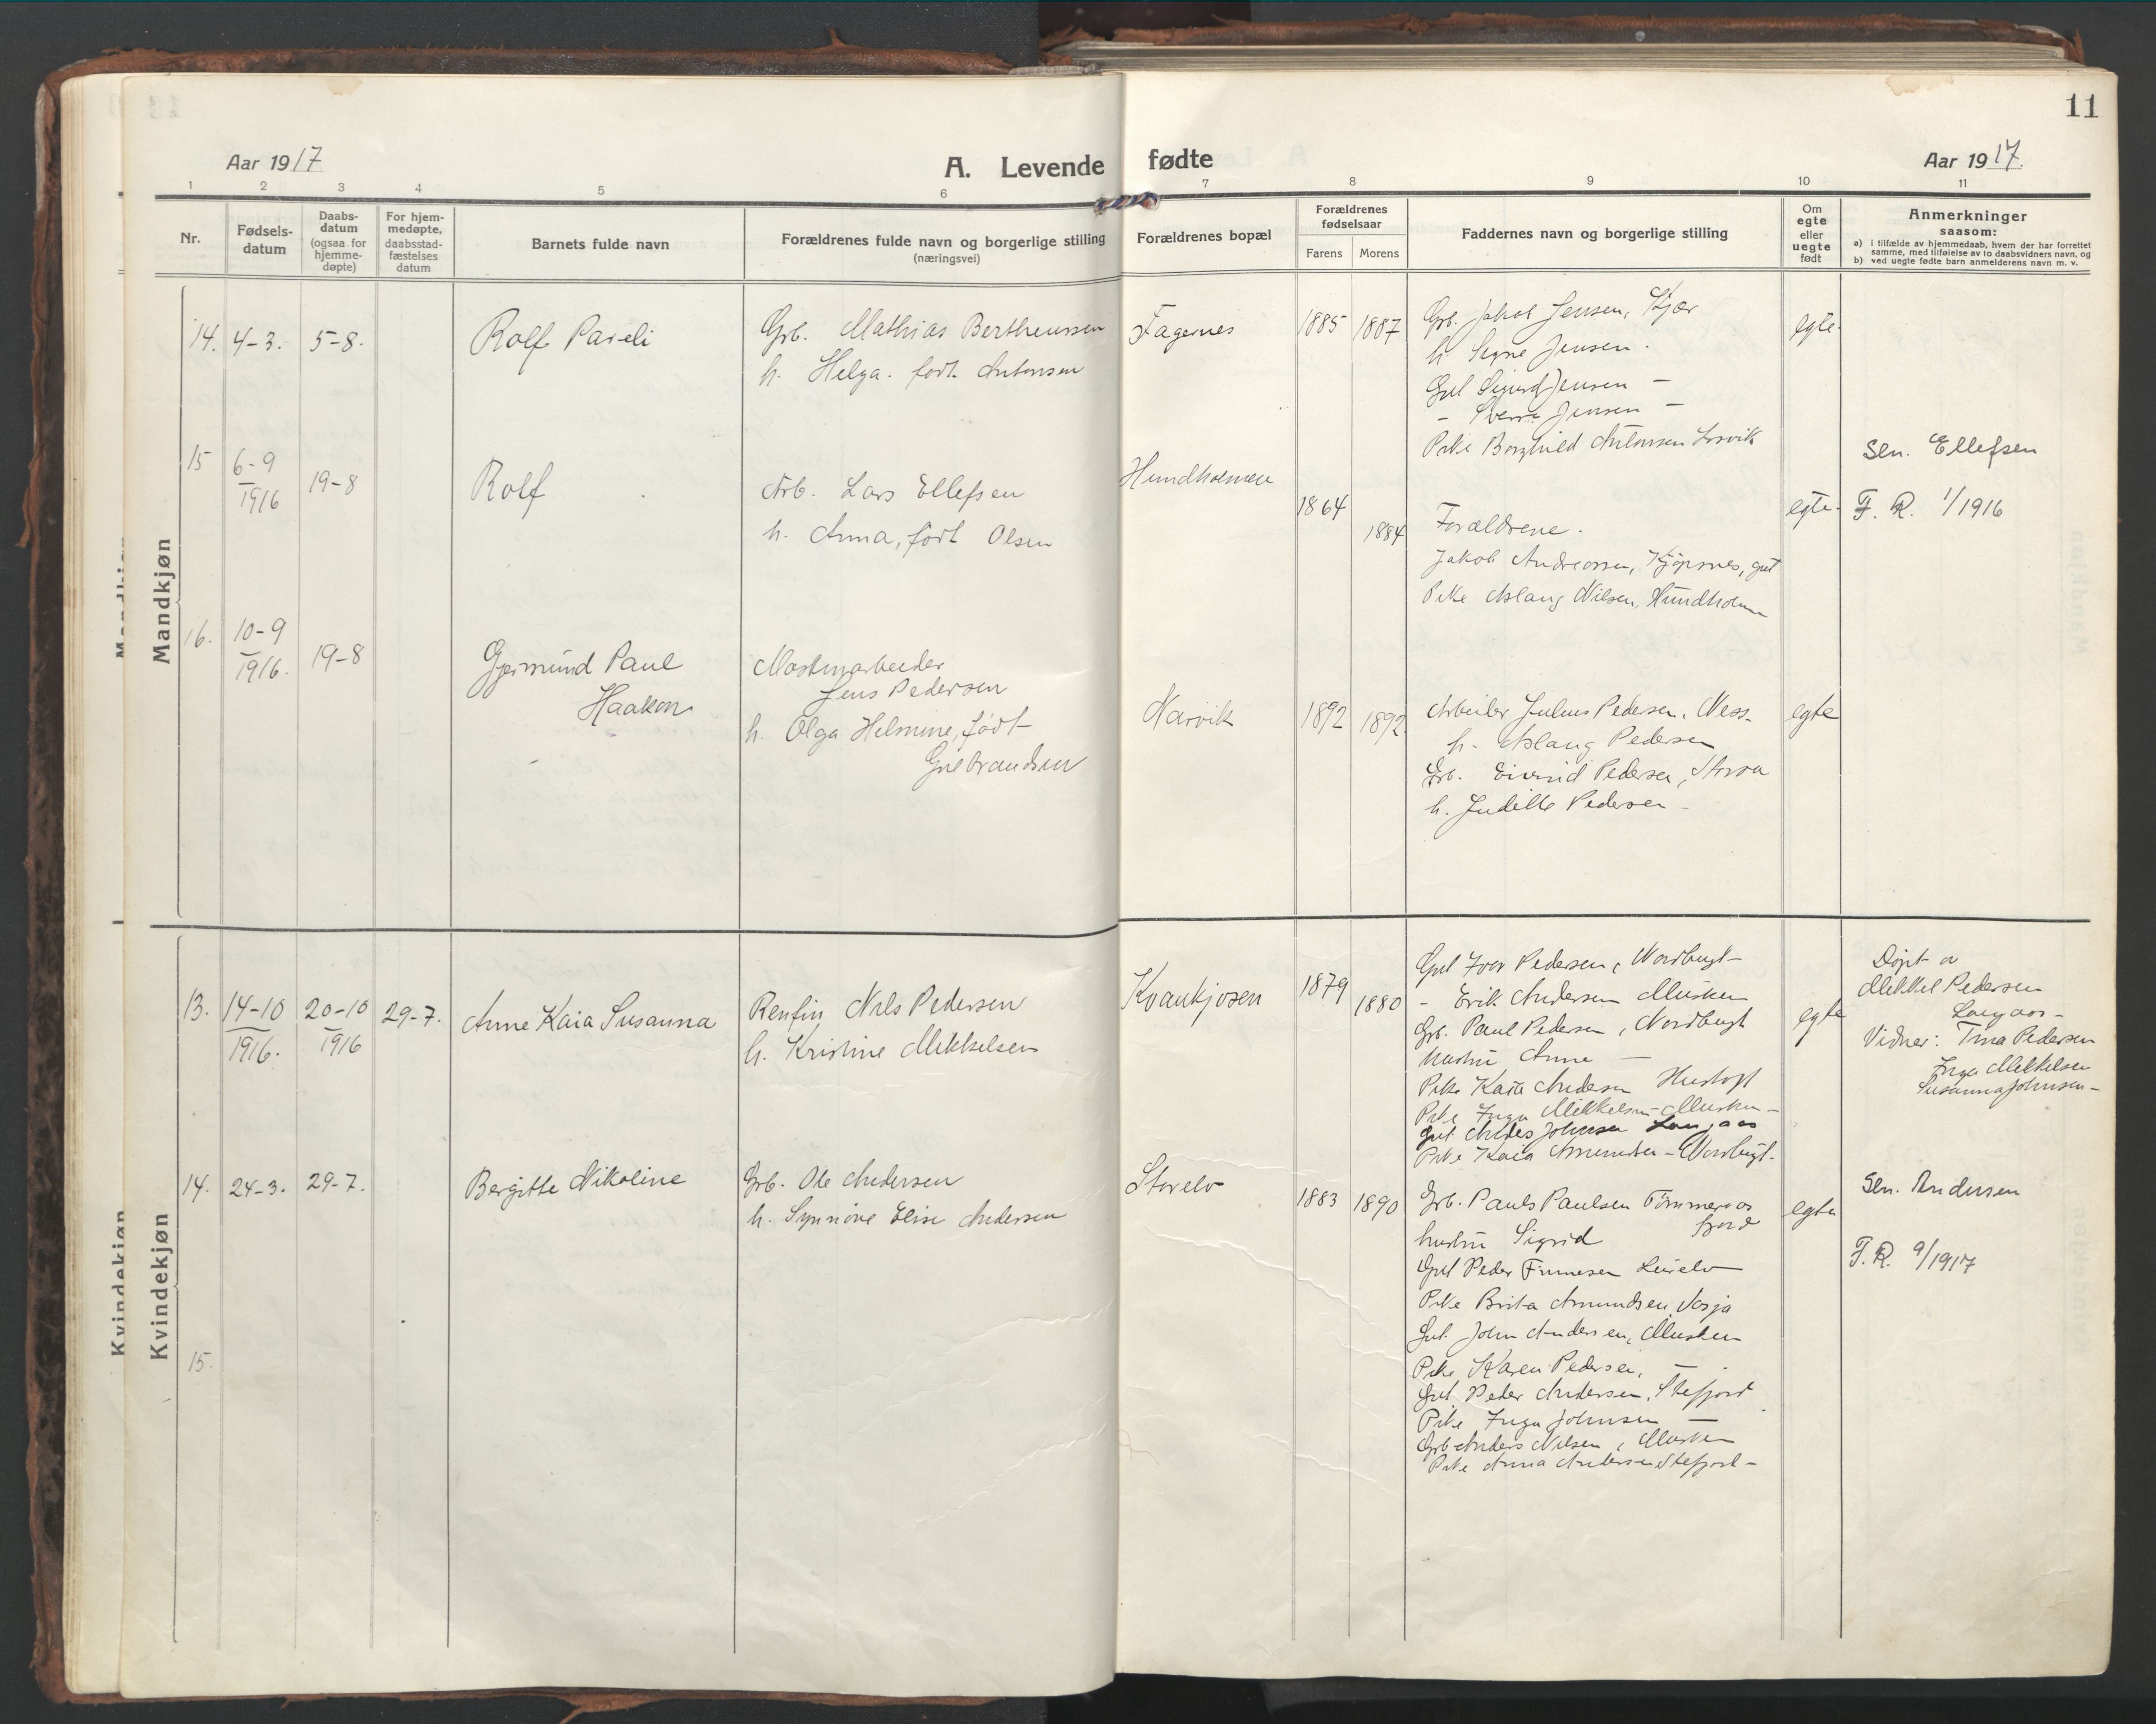 11
Aar 1917
A. Levende fødte
Aar 1917.
1 2 3 4 5 6 7 8 9 10 11
Nr.
Fødsels-
datum
Daabs-
datum
(ogsaa for
hjemme-
døpte)
For hjem-
medøpte,
daabsstad-
fæstelses
datum
Barnets fulde navn
Forældrenes fulde navn og borgerlige stilling
(næringsvei)
Forældrenes bopæl
Forældrenes
fødselsaar
Farens Morens
Faddernes navn og borgerlige stilling
Om
egte
eller
uegte
født
Anmerkninger
saasom:
a) i tilfælde av hjemmedaab, hvem der har forrettet
samme, med tilføielse av to daabsvidners navn, og
b) ved uegte fødte barn anmelderens navn m. v.
Mandkjøn
14. 4-3. 5-8.
Rolf Pareli
Grb. Mathias Bertheussen
h. Helga. født Antonsen
Fagernes
1885 1887
Grb. Jakob Jensen, Kjær
h. Signe Jensen.
Gut Sigurd Jensen —
- Sverre Jensen —
Pike Borghild Antonsen
egte.
15 6-9
1916
19-8
Rolf
Arb. Lars Ellefsen
h. Anna, født Olsen
Hundholmen
1864
1884
Forældrene.
Jakob Andreassen, Kjøpsnes, gut
Pike Aslaug Nilsen, Hundholmen
egte.
Sen. Ellefsen
F. R. 1/1916
16. 10-9
1916.
19-8
Gjermund Paul
Haakon
Jens Pedersen
h. Olga Helmine, født
Gulbrandsen
Narvik
1892 1892.
Arbeider Julius Pedersen, Ness.
h. Aslaug Pedersen
Grb. Eivind Pedersen, Storva
h. Judithe Pedersen —
egte
Kvindekjøn
13. 14-10
1916.
20-10
1916
29-7.
Anne Kaia Susanna
Renfin Nils Pedersen
h. Kristine Mikkelsen
Kvankjosen
1879
1880
Gut Iver Pedersen, Nordbugt —
- Erik Andersen Musken
Grb. Paul Pedersen, Nordbugt
hustru Anne —
Pike Kaia Andersen
Pike Inga Mikkelsen — Musken —
Gut. Anders Johnsen Langaas
Pike Kaia Amundsen — Nordbugt.
egte
Døpt av
Mikkel Pedersen
Langaas —
Vidner: Tina Pedersen
Inga Mikkelsen
Susanna Johnsen —
14. 24-3. 29-7.
Bergitte Nikoline
Grb. Ole Andersen
h. Synnöve Elise Andersen
Storelv
1883 1890
Grb. Pauls Paulsen Tömmeraas
fjord
hustru Sigrid
Gut Peder Finnesen Leirelv
Pike Brita Amundsen,
Gut. John Andersen, Musken
Pike Karen Pedersen, —
Gut. Peder Andersen, Stefjord
Pike Inga Johnsen —
Grb Anders Nilsen, Musken
Pike Anna Andersen Stefjord —
egte
Sen. Andersen
F. R. 9/1917
15.
Kvindekjøn